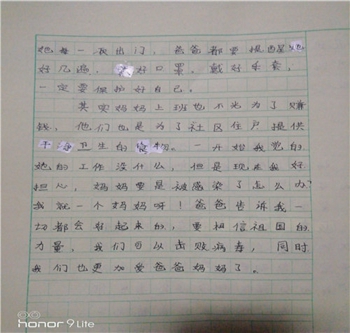 她每一次出门，爸爸都要提醒她
好几遍，戴好口罩，戴好手套，
一定要保护好自己。
其实妈妈上班也不光为了赚
钱，他们也是为了社区住户提供
干净卫生的食物。一开始我觉的
她的工作没什么，但是现在我好
担心，妈妈要是被感染了怎么办？
我就一个妈妈呀！爸爸告诉我一
切都会好起来的，要相信祖国的
力量，我们可以击败病毒，同时
我们也更加爱爸爸妈妈了。
honor 9 Lite